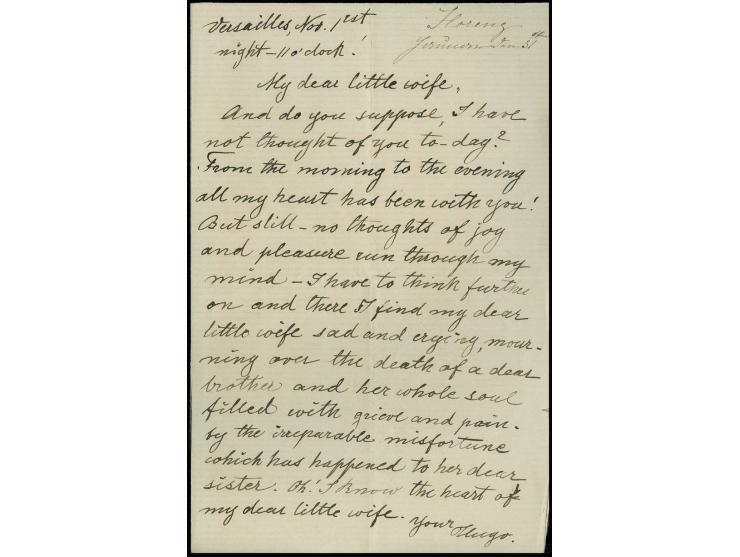 Versailles, Nov. 1est
night - 11 o'clock!
Florenz
My dear little wife,
And do you suppose, I have
not thought of you to-day?
From the morning to the evening
all my heart has been with you!
But still - no thoughts of joy
and pleasure run through my
mind - I have to think further
on and there I find my dear
little wife sad and crying, mour-
ning over the death of a dear
brother and her whole soul
filled with grieve and pain -
by the irreparable misfortune
which has happened to her dear
sister. Oh! I know the heart of
my dear little wife. your
Hugo.